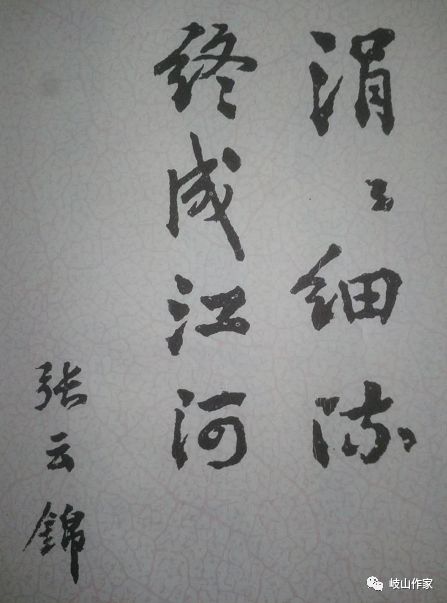 涓〻细流
终成江河
张云锦
岐山作家